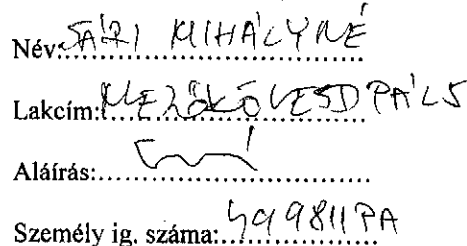 Név: SÁRI MIHÁLYNÉ
Lakcím: MEZŐKÖVESD PÁL 5
Aláírás:
Személy ig. száma: 499811PA